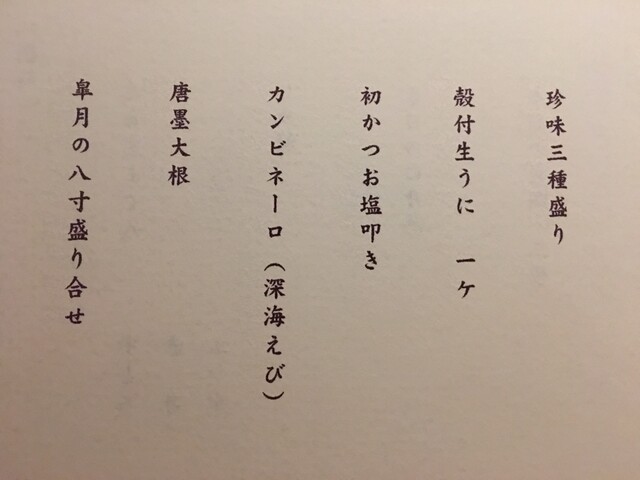 珍味三種盛り
殻付生うに 一ケ
初かつお塩叩き
カンビネーロ（深海えび）
唐墨大根
皐月の八寸盛り合せ